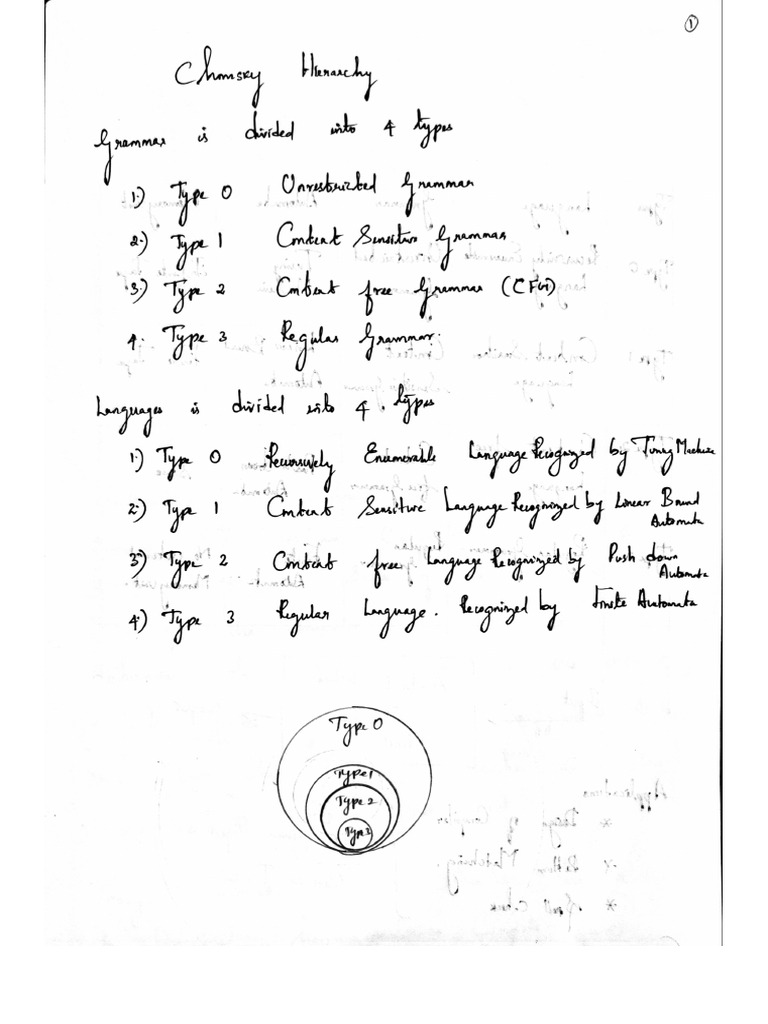 1
Chomsky Hierarchy
Grammar is divided into 4 types
1.) Type 0 Unrestricted Grammar
2.) Type 1 Context Sensitive Grammar
3.) Type 2 Context free Grammar (CFG)
4. Type 3 Regular Grammar.
Languages is divided into 4 types
1.) Type 0 Recursively Enumerable Language Recognized by Machine
2.) Type 1 Context Sensitive Language Recognized by Linear Bound
Automata
3.) Type 2 Context free Language Recognized by Push down
Automata
4.) Type 3 Regular Language. Recognized by Finite Automata
Type 0
Type 1
Type 2
Type 3